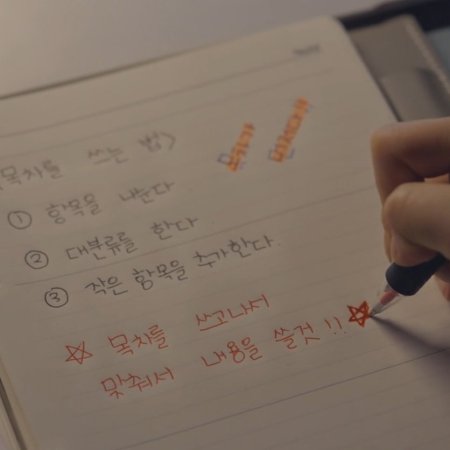 목차를 쓰는 법>
① 항목을 나눈다
② 대분류를 한다
③ 작은 항목을 추가한다.
☆ 목차를 쓰고나서
맞춰서 내용을 쓸것!! ☆